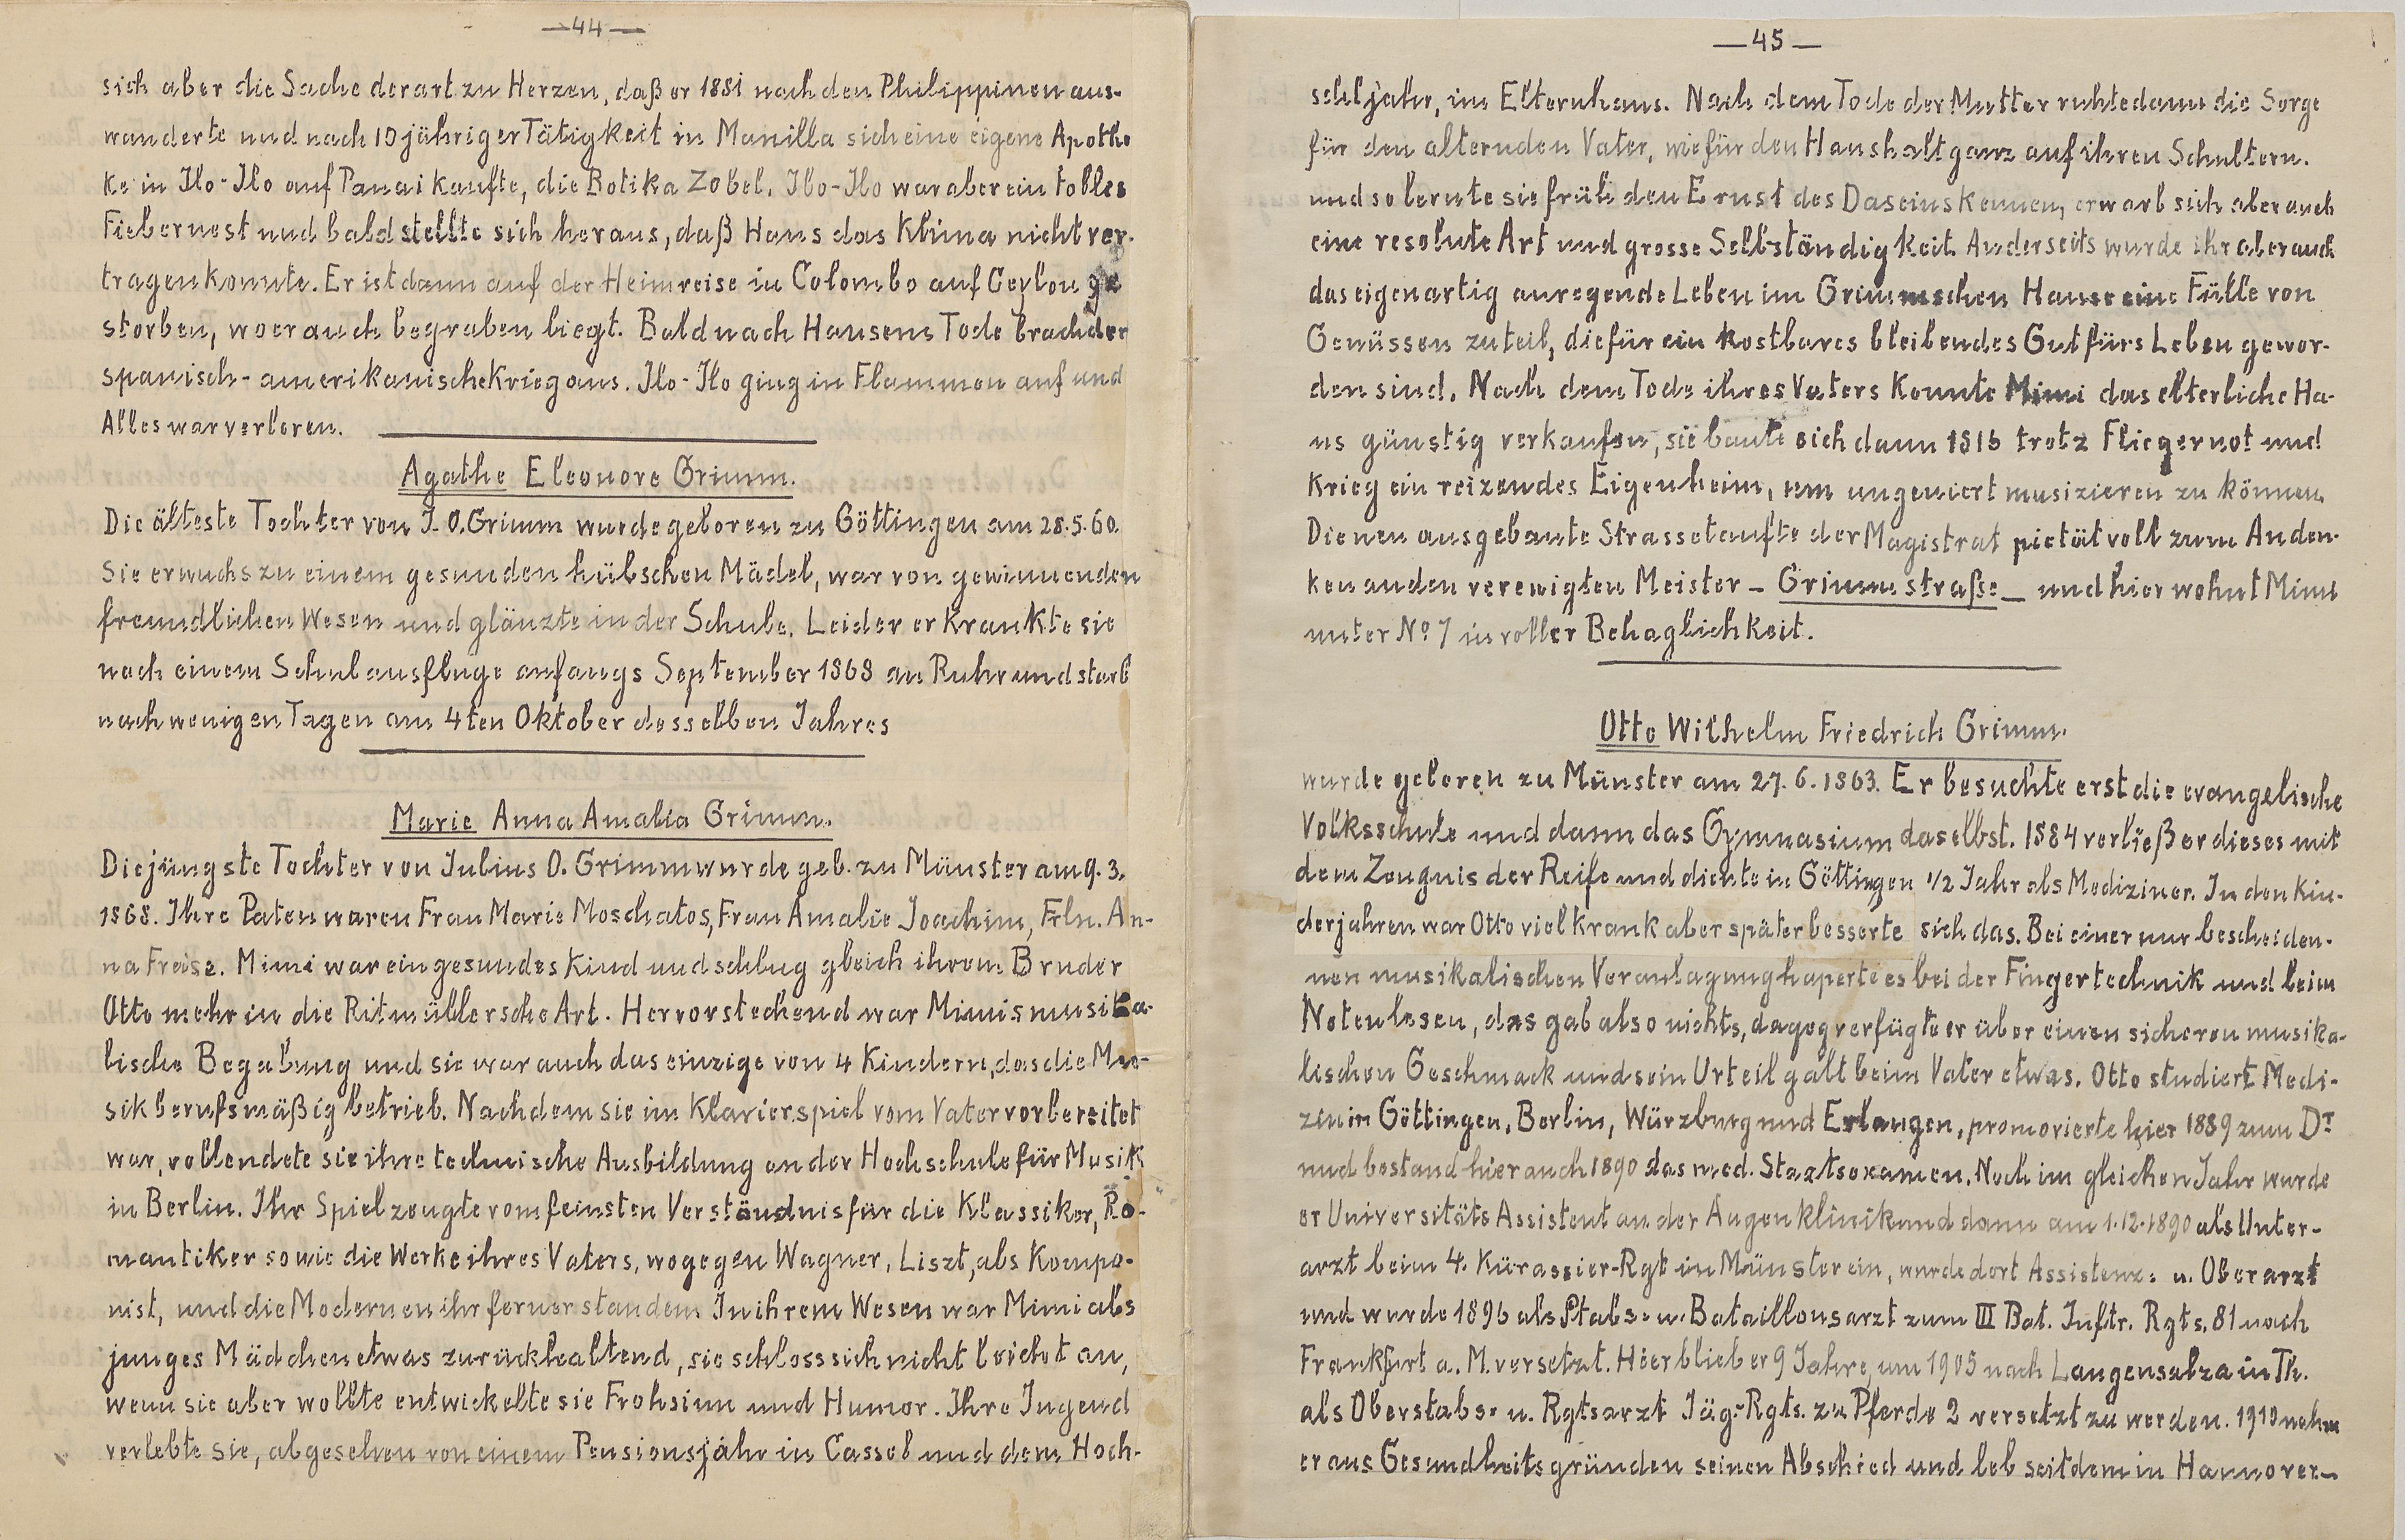 —44—
sich aber die Sache derart zu Herzen, daß er 1881 nach den Philippinen aus-
wanderte und nach 10 jähriger Tätigkeit in Manilla sich eine eigene Apothe
ke in Ilo-Ilo auf Panai kaufte, die Botika Zobel. Ilo-Ilo war aber ein tolles
Fiebernest und bald stellte sich heraus, daß Hans das Klima nicht ver-
tragen konnte. Er ist dann auf der Heimreise in Colombo auf Ceylon ge
storben, wo er auch begraben liegt. Bald nach Hansens Tode brach der
spanisch-amerikanische Krieg aus. Ilo-Ilo ging in Flammen auf und
Alles war verloren.
Agathe Eleonore Grimm.
Die älteste Tochter von J. O. Grimm wurde geboren zu Göttingen am 28.5.60.
Sie erwuchs zu einem gesunden hübschen Mädel, war von gewinnenden
freundlichen Wesen und glänzte in der Schule. Leider erkrankte sie
nach einem Schulausfluge anfangs September 1868 an Ruhr und starb
nach wenigen Tagen am 4ten Oktober desselben Jahres
Marie Anna Amalia Grimm.
Die jüngste Tochter von Julius O. Grimm wurde geb. zu Münster am 9. 3.
1868. Ihre Paten waren Frau Marie Moschatos, Frau Amalie Joachim, Frln. An-
na Freise. Mimi war ein gesundes Kind und schlug gleich ihrem Bruder
Otto mehr in die Ritmüllersche Art. Hervorstechend war Mimis musika-
lische Begabung und sie war auch das einzige von 4 Kindern, das die Mu-
sik berufsmäßig betrieb. Nachdem sie im Klavierspiel vom Vater vorbereitet
war, vollendete sie ihre technische Ausbildung an der Hochschule für Musik
in Berlin. Ihr Spiel zeugte vom feinsten Verständnis für die Klassiker, Ro-
mantiker sowie die Werke ihres Vaters, wogegen Wagner, Liszt, als Kompo-
nist, und die Modernen ihr ferner standen. In ihrem Wesen war Mimi als
junges Mädchen etwas zurückhaltend, sie schloss sich nicht leicht an,
wenn sie aber wollte entwickelte sie Frohsinn und Humor. Ihre Jugend
verlebte sie, abgesehen von einem Pensionsjahr in Cassel und dem Hoch-
—45—
schljahr, im Elternhaus. Nach dem Tode der Mutter ruhte dann die Sorge
für den alternden Vater, wie für den Haushalt ganz auf ihren Schultern.
und so lernte sie früh den Ernst des Daseins kennen, erwarb sich aber auch
eine resolute Art und grosse Selbständigkeit. Anderseits wurde ihr aber auch
das eigenartig anregende Leben im Grimmschen Hause eine Fülle von
Genüssen zuteil, die für ein kostbares bleibendes Gut fürs Leben gewor-
den sind. Nach dem Tode ihres Vaters konnte Mimi das elterliche Ha-
us günstig verkaufen, sie baute sich dann 1916 trotz Fliegernot und
Krieg ein reizendes Eigenheim, um ungeniert musizieren zu können.
Die neu ausgebaute Strasse taufte der Magistrat pietätvoll zum Anden-
ken an den verewigten Meister - Grimmstraße - und hier wohnt Mimi
unter No 7 in voller Behaglichkeit.
Otto Wilhelm Friedrich Grimm.
wurde geboren zu Münster am 27. 6. 1863. Er besuchte erst die evangelische
Volksschule und dann das Gymnasium daselbst. 1884 verließ er dieses mit
dem Zeugnis der Reife und diente in Göttingen 1/2 Jahr als Mediziner. In den Kin-
derjahren war Otto viel krank aber später besserte sich das. Bei einer nur bescheiden-
nen musikalischen Veranlagung haperte es bei der Fingertechnik und beim
Notenlesen, das gab also nichts, dageg verfügte er über einen sicheren musika-
lischen Geschmack und sein Urteil galt beim Vater etwas. Otto studiert Medi-
zin in Göttingen, Berlin, Würzburg und Erlangen, promovierte hier 1889 zum Dr
und bestand hier auch 1890 das med. Staatsexamen. Noch im gleichen Jahr wurde
er Universitäts Assistent an der Augenklinik und dann am 1.12.1890 als Unter-
arzt beim 4. Kürassier-Rgt in Münster ein, wurde dort Assistenz- u. Oberarzt
und wurde 1896 als Stabs- u. Bataillonsarzt zum III Bat. Inftr. Rgts. 81 nach
Frankfurt a. M. versetzt. Hier blieb er 9 Jahre, um 1905 nach Langensalza in Th.
als Oberstabs- u. Rgtsarzt Jäg-Rgts. zu Pferde 2 versetzt zu werden. 1910 nahm
er aus Gesundheitsgründen seinen Abschied und leb seitdem in Hannover.—